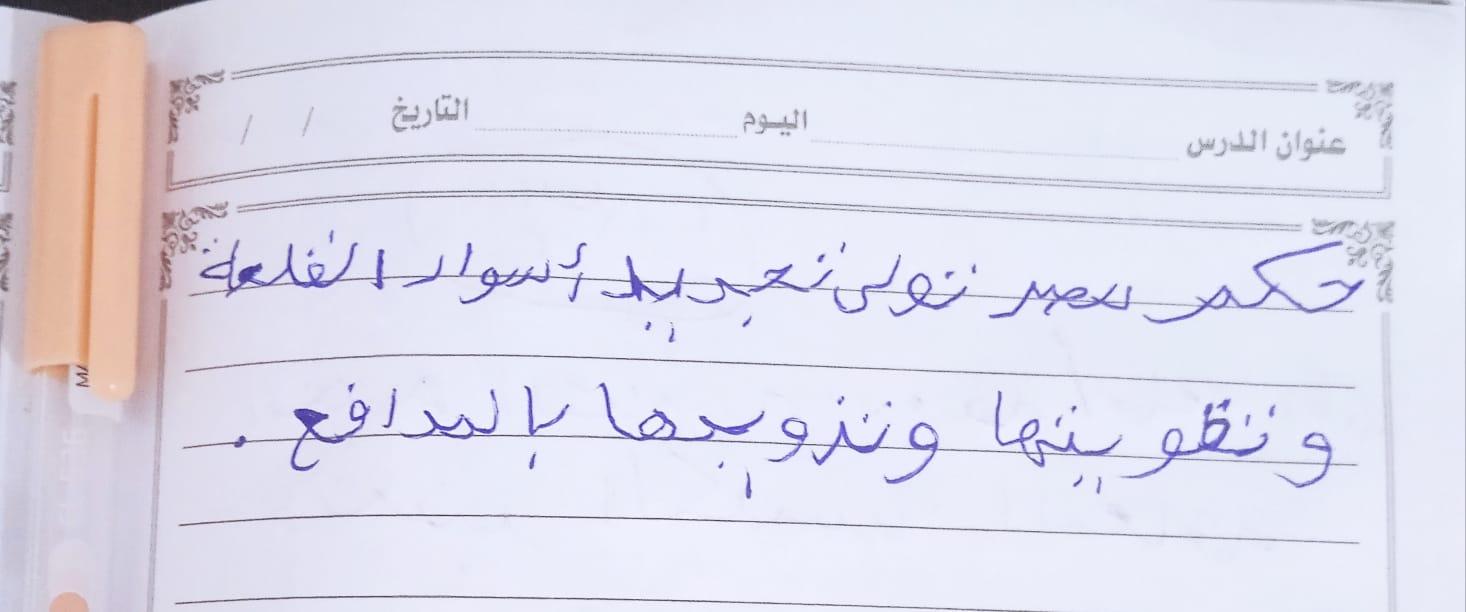 عنوان الدرس اليوم التاريخ / /
حكم مصر تولى تجديد أسوار القلعة
وتقويتها وتزويدها بالمدافع .